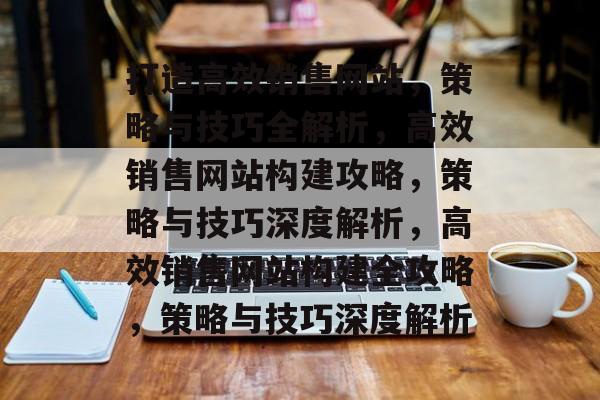 打造高效销售网站，策
略与技巧全解析，高效
销售网站构建攻略，策
略与技巧深度解析，高
效销售网站构建全攻略
，策略与技巧深度解析